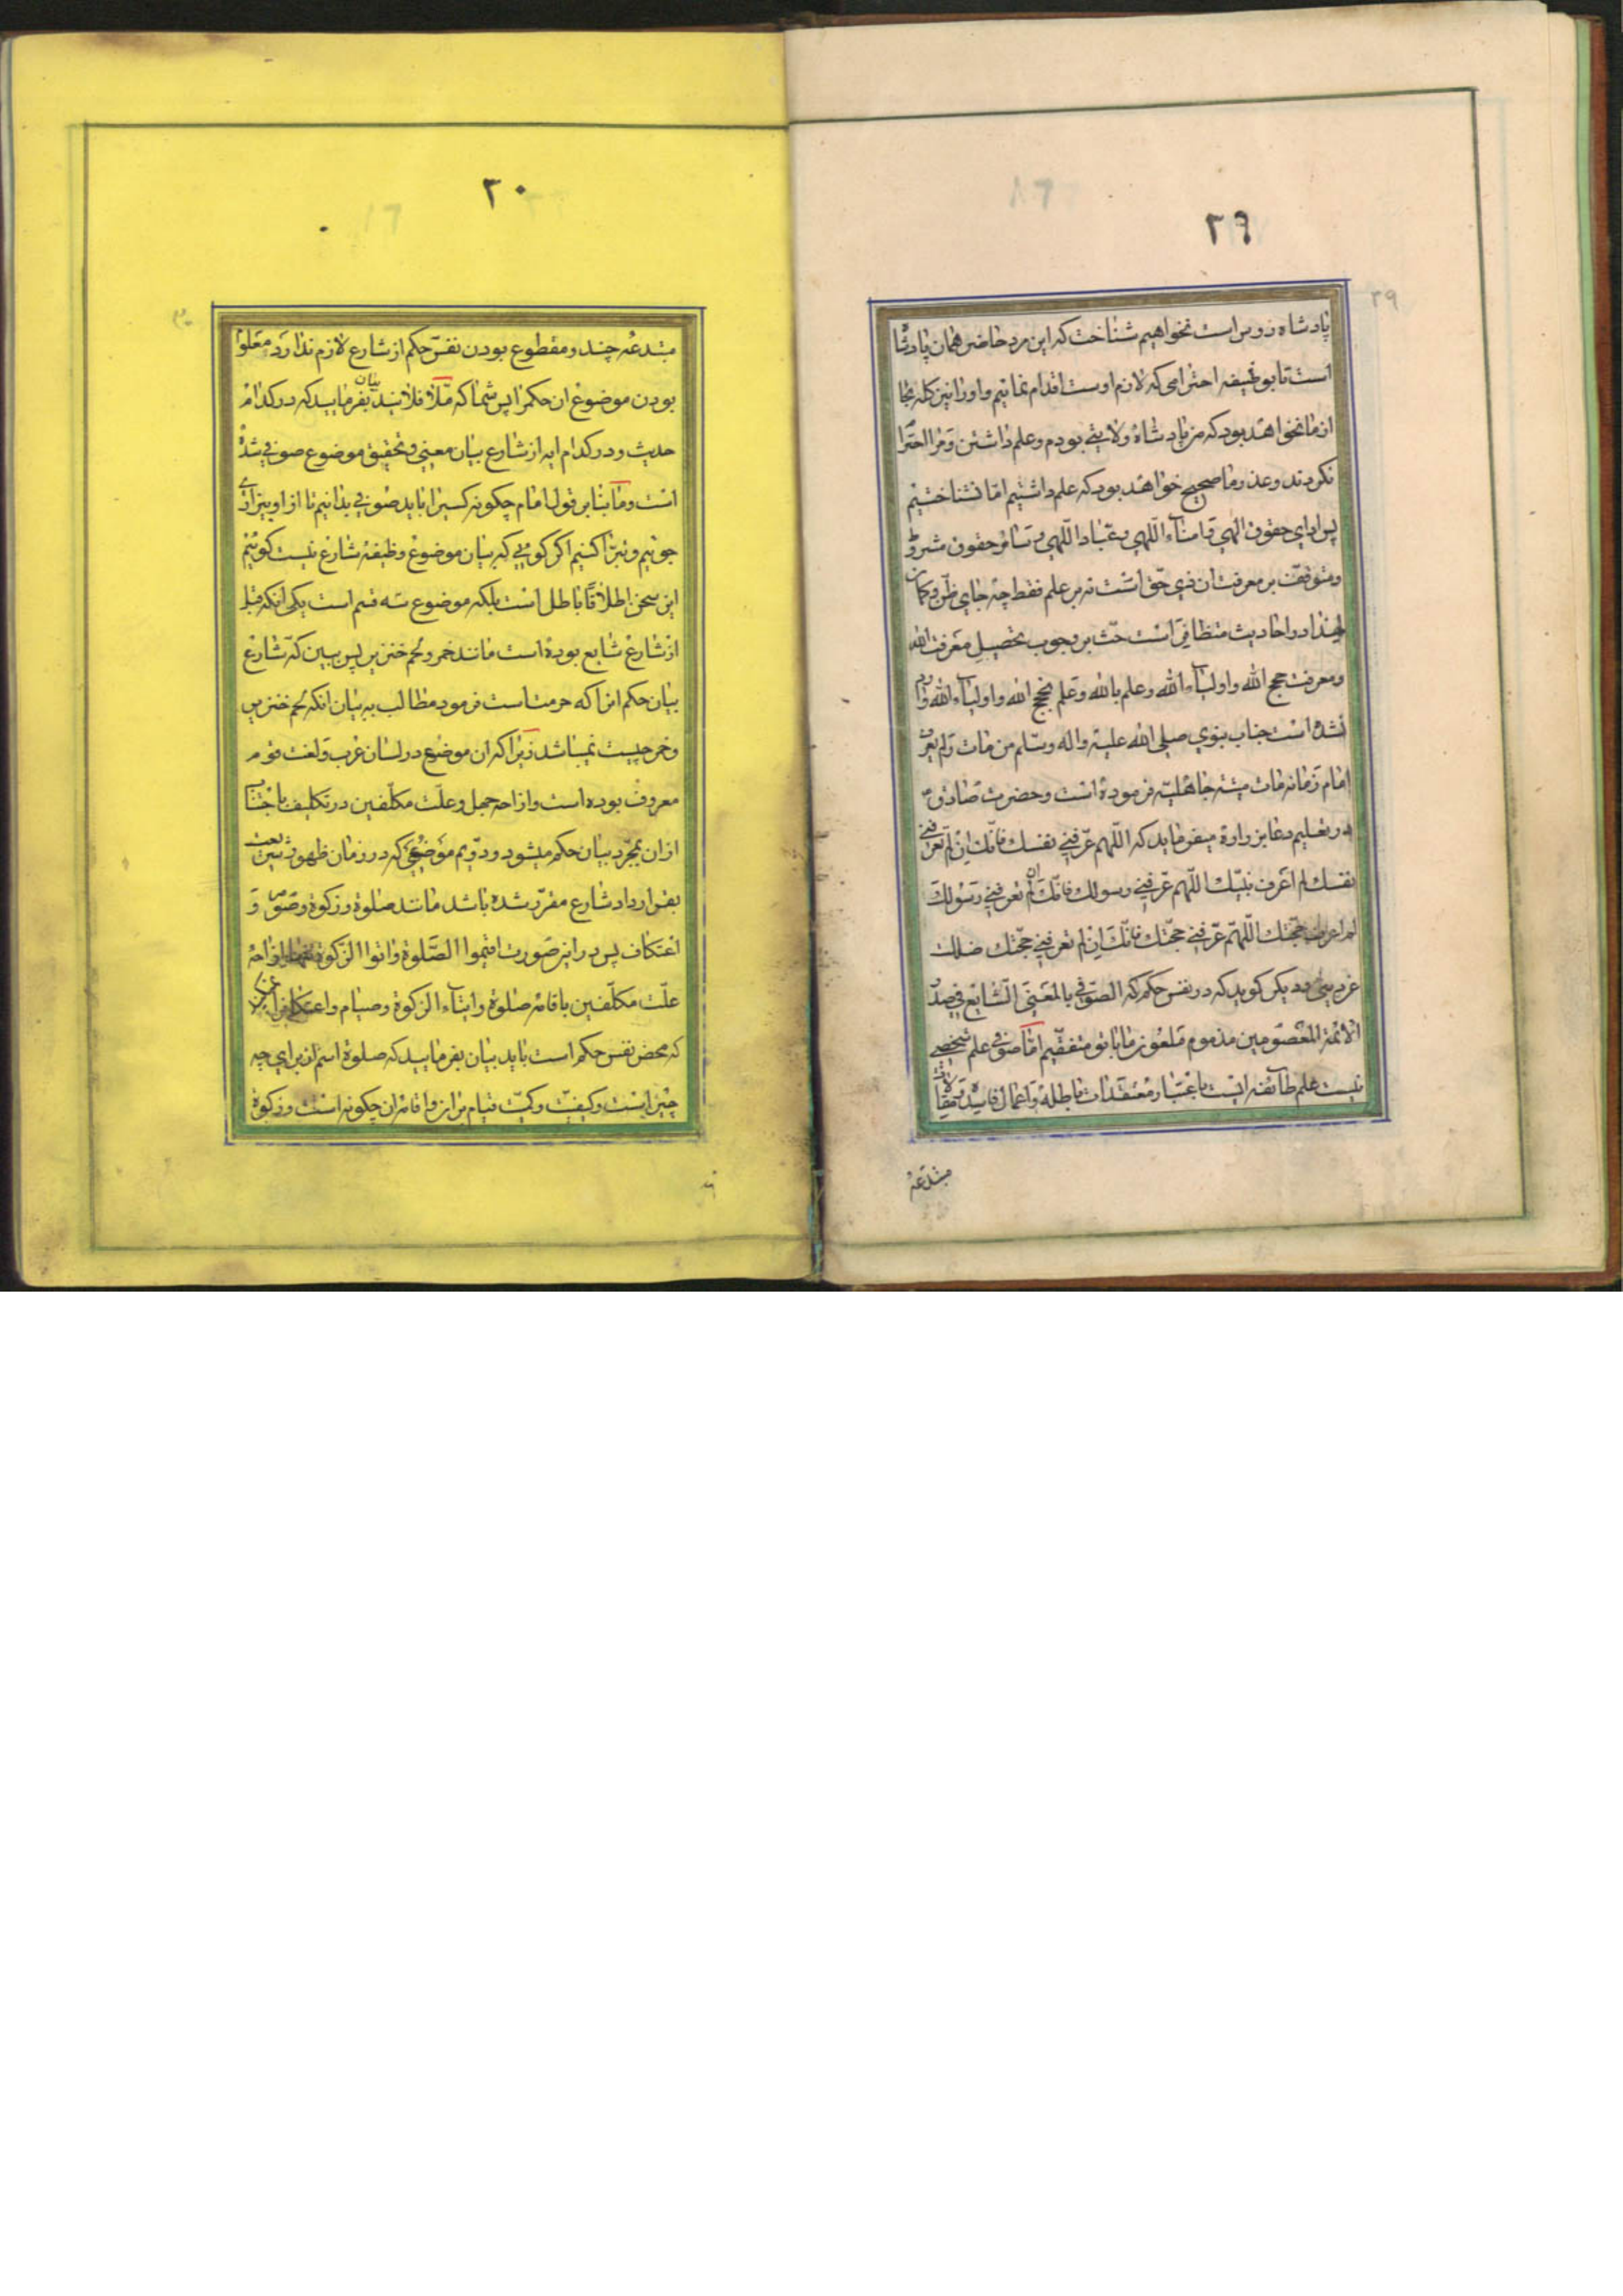 ۲۹
۲۹
پادشاه زوس است نخواهیم شناخت که این مرد حاضر همان پادشا
است تا بوظیفه احترامی که لازم اوست اقدام نمائیم و او را نیز کله بجا
از ما نخواهد بود که من پادشاه ولایتی بودم و علم داشتن و مرا احترا
نکردند و عذر ما صحیح خواهد بود که علم داشتیم اما نشناختیم
پس ادای حقوق الهی و امناء اللّهی و عباد اللّهی و سائر حقوق مشروط
و متوقف بر معرفت ان ذی حق است نه بر علم فقط چه جای ظن و کمان
لهذا در احادیث متظافی است حث بر وجوب تحصیل معرفت الله
و معرفت حجج الله و اولیاء الله و علم بالله و علم بحجج الله و اولیاء الله وارد
نشده است جناب نبوی صلی الله علیه و اله و سلم من مات و لم یعرف
امام زمانه مات میتة جاهلیة فرموده است و حضرت صادق ع
در تعلیم دعا بزراره میفرماید که اللّهم عرّفنی نفسک فانّک ان لم تعرفنی
نفسک لم اعرف نبیّک اللّهم عرّفنی رسولک فانّک ان لم تعرفنی رسولک
لم اعرف حجّتک اللّهم عرّفنی حجّتک فانّک ان لم تعرفنی حجّتک ضللت
عن دینی و دیکر کوید که در نفس حکم که الصّوفی بالمعنی الشایع فی صدر
الائمة المعصومین مذموم ملعون ما با تو متفقیم اما صوفی علم شخصی
نیست علم طائفه ایست باعتبار معتقدات باطله و اعمال فاسده و مقالات
مبتدعه
۳۰
۳۰
مبتدعه چند و مقطوع بودن نفس حکم از شارع لازم ندارد معلوم
بودن موضوع ان حکم را پس شما که ملّا فلانید بیان بفرمایید که در کدام
حدیث و در کدام ایه از شارع بیان معنی و تحقیق موضوع صوفی شده
است و ما بنا بر قول امام چکونه کسیرا باید صوفی بدانیم تا از او بیزاری
جوئیم و تبرّا کنیم اکر کویی که بیان موضوع وظیفه شارع نیست کوئیم
این سخن اطلاقا باطل است بلکه موضوع سه قسم است یکی انکه قبل
از شارع شایع بوده است مانند خمر و لحم خنزیر پس ببین که شارع
بیان حکم انرا که حرمت است فرمود مطالب به بیان انکه لحم خنزیر
و خمر چیست نمیباشد زیرا که ان موضوع در لسان عرب و لغت قوم
معروف بوده است و ازاحه جهل و علّت مکلّفین در تکلیف باجتناب
از ان بمجرّد بیان حکم میشود و دوّیم موضوعی که در زمان ظهور شریعت
بقرارداد شارع مقرّر شده باشد مانند صلوة و زکوة و صوم و
اعتکاف پس در این صورت اقیموا الصّلوة و اتوا الزّکوة ازاحه
علّت مکلّفین باقامه صلوة و ایتاء الزکوة و صیام و اعتکاف
که محض نفس حکم است باید بیان بفرمایید که صلوة اسم از برای چه
چیز ایست و کیفیّت و کمیّت قیام مر انرا و اقامه ان چکونه است و زکوة